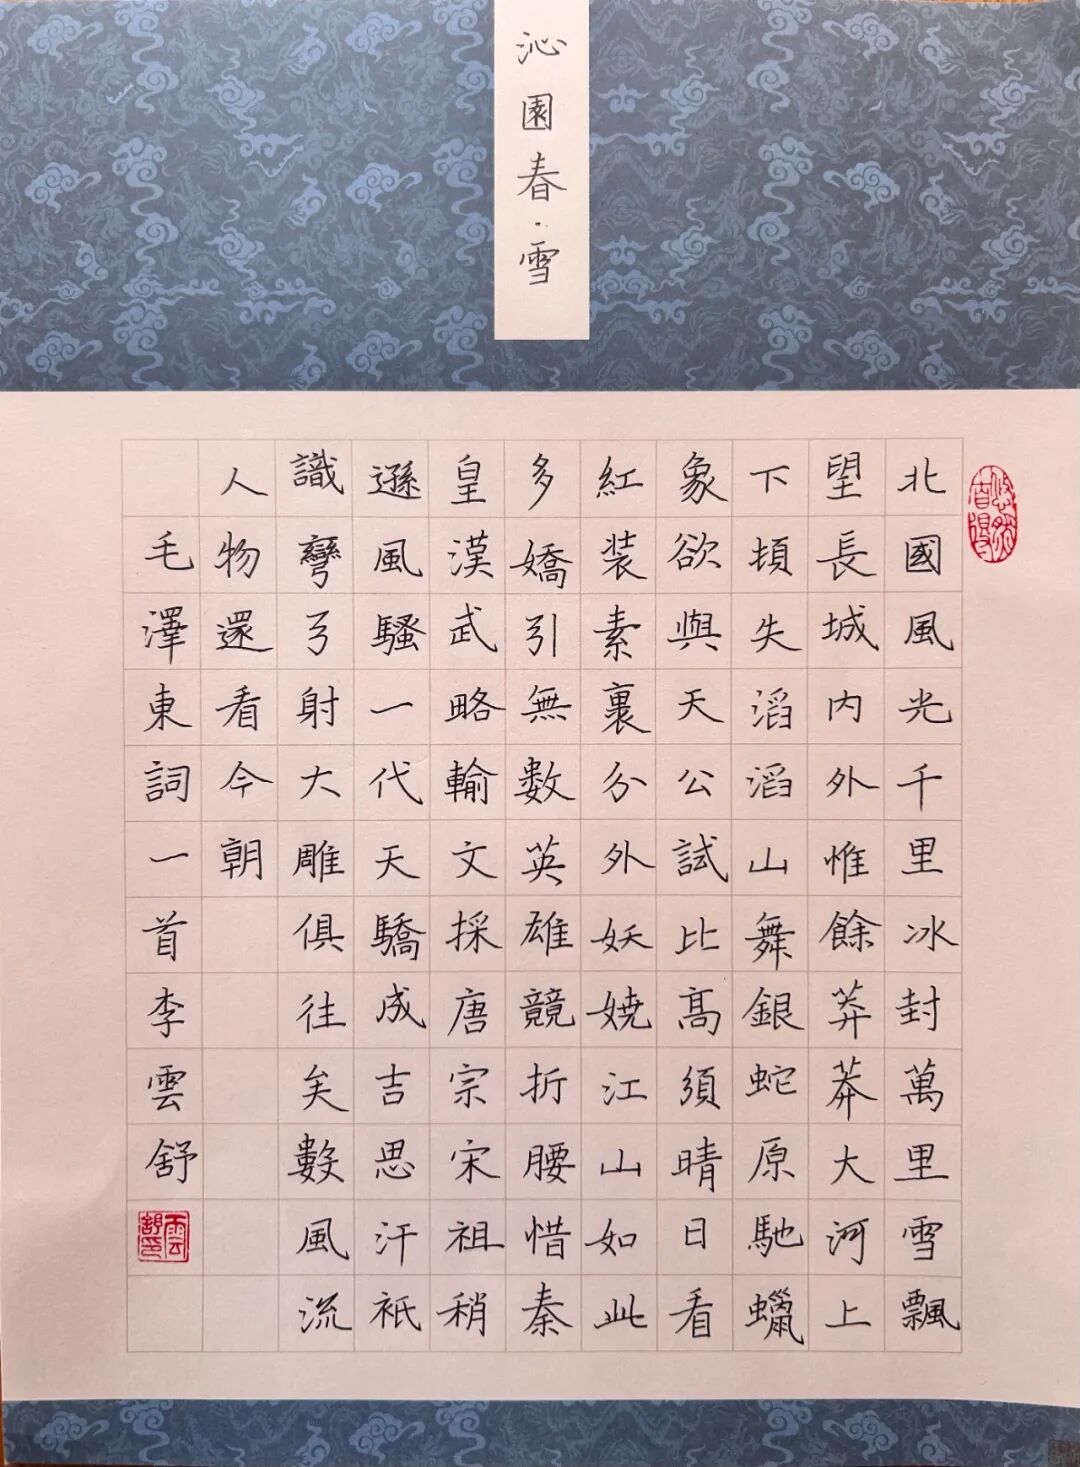 沁園春·雪
悠然自得
北國風光千里冰封萬里雪飄
望長城内外惟餘莽莽大河上
下頓失滔滔山舞銀蛇原馳蠟
象欲與天公試比髙須晴日看
紅装素裹分外妖娆江山如此
多嬌引無数英雄競折腰惜秦
皇漢武略輸文採唐宗宋祖稍
遜風騷一代天驕成吉思汗衹
識彎弓射大雕俱往矣數風流
人物還看今朝
毛澤東詞一首李雲舒
雲舒印